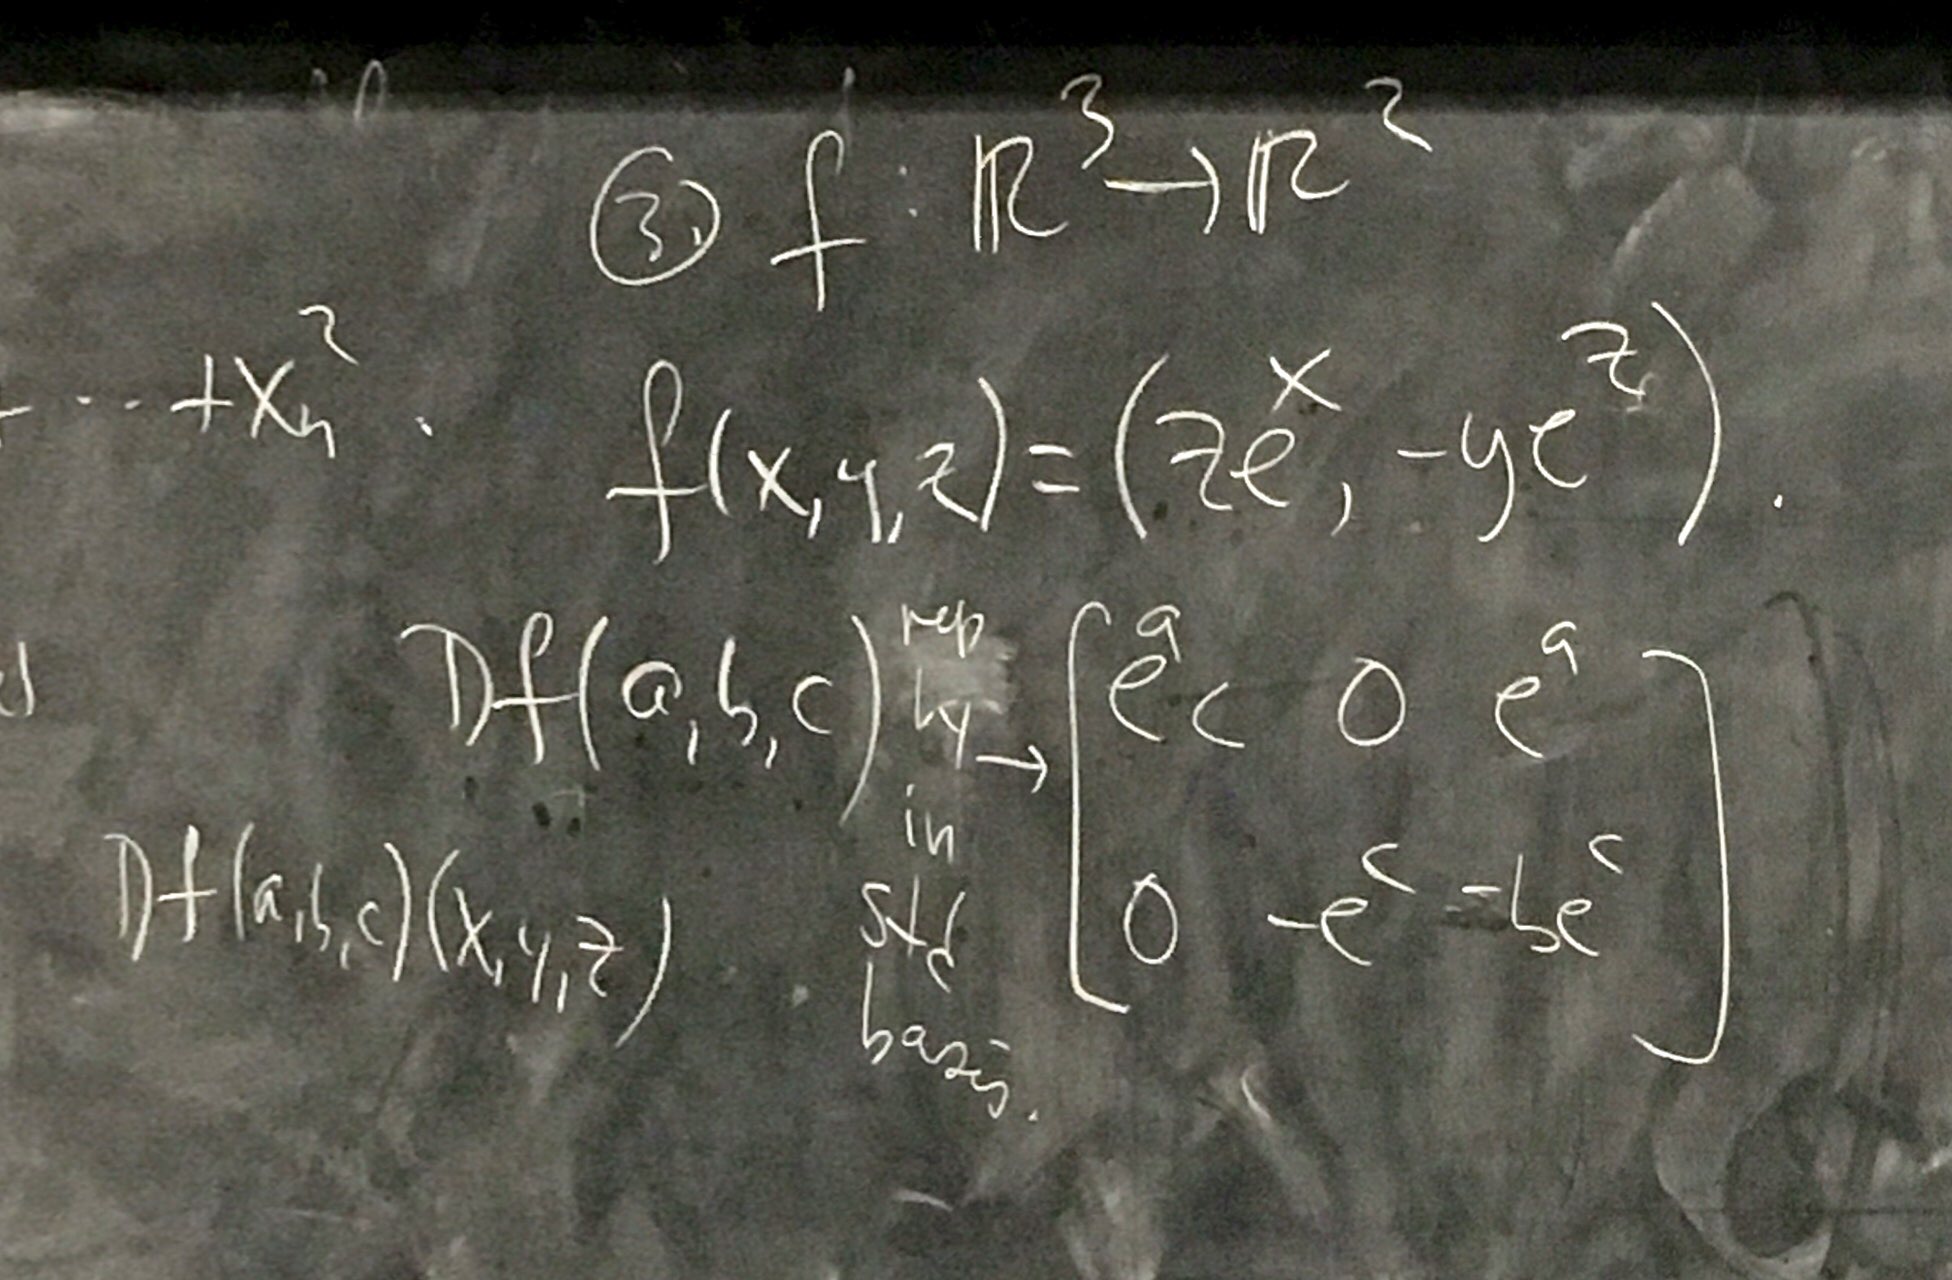 ③. f : ℝ³ → ℝ²
⋯ + xₙ² .
f(x, y, z) = (ze^x, -ye^z).
Df(a, b, c) rep by in std basis. → [ e^a c 0 e^a
0 -e^c -be^c ]
Df(a, b, c)(x, y, z)